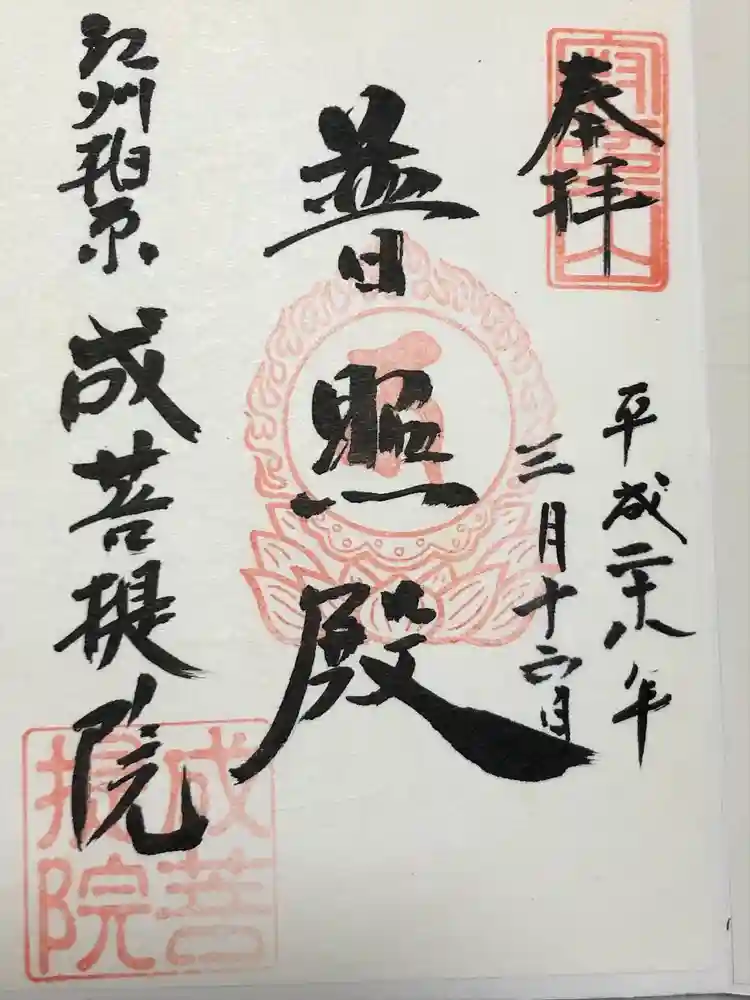 奉拝
平成二十八年
三月十六日
普照殿
江州柏原
成菩提院
成菩
提院